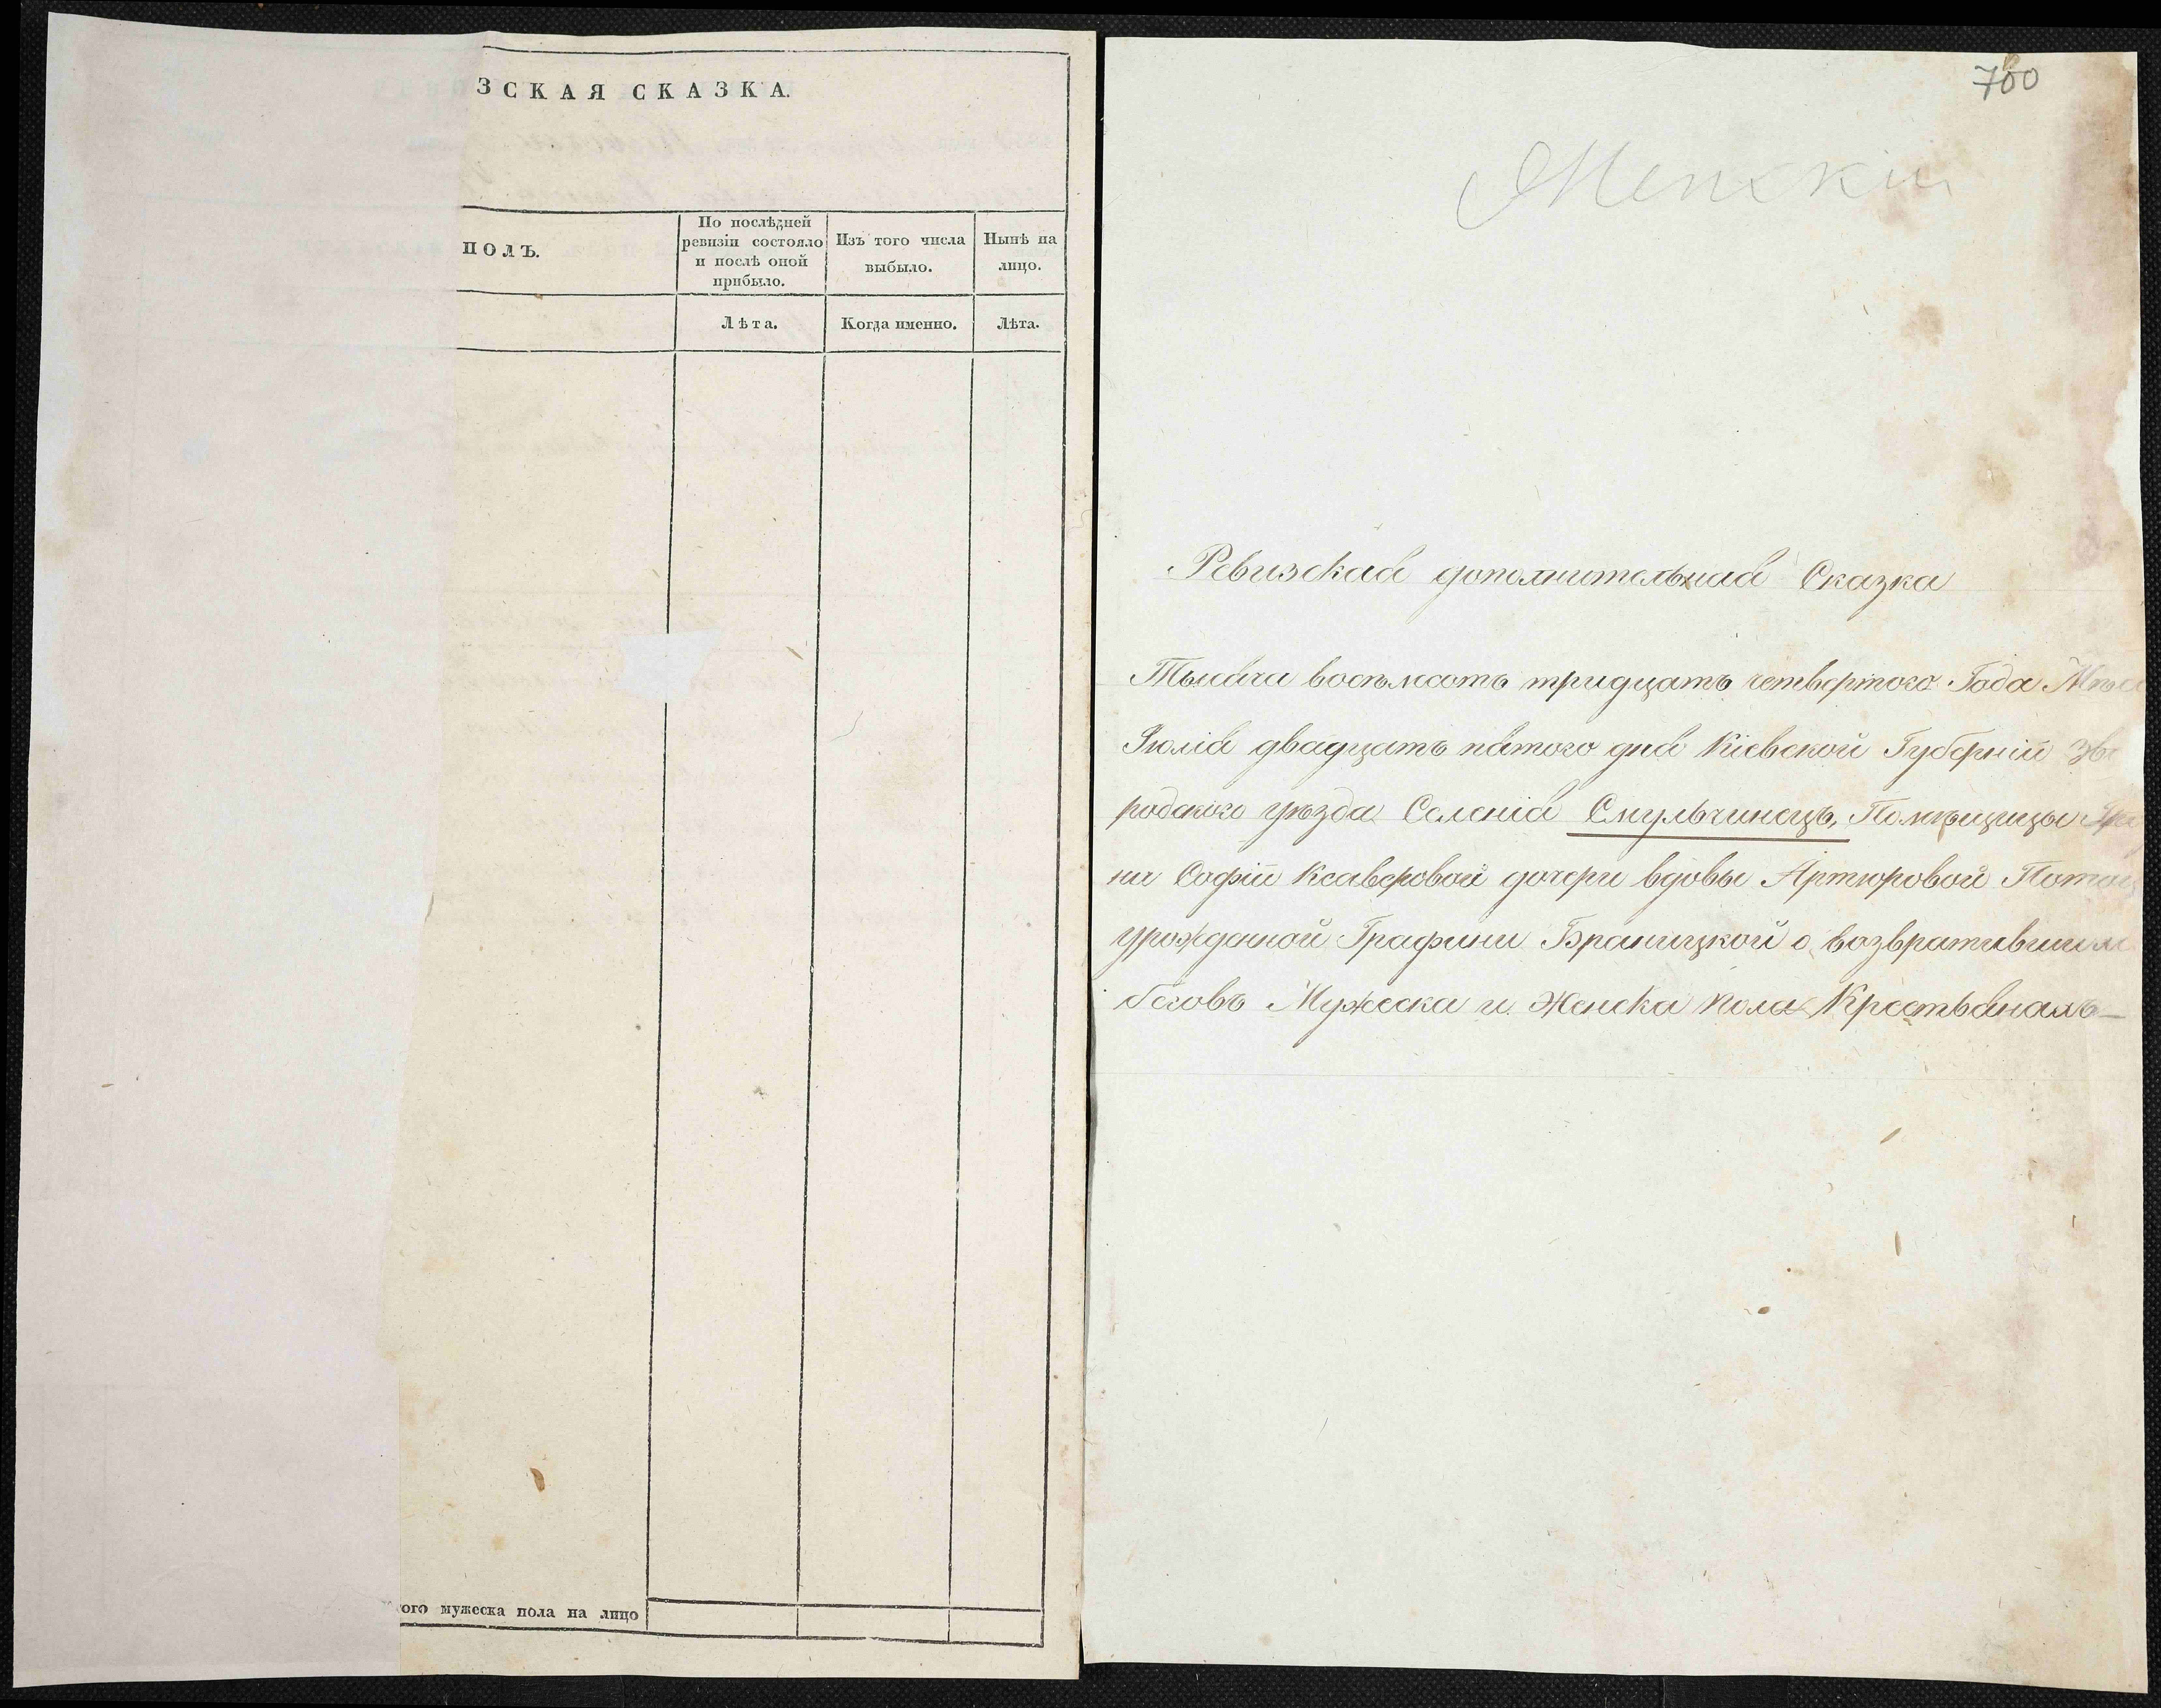 ЗСКАЯ СКАЗКА.
ПОЛЪ.
По послѣдней
ревизіи состояло
и послѣ оной
прибыло.
Изъ того числа
выбыло.
Нынѣ на
лицо.
Лѣта.
Когда именно.
Лѣта.
ого мужеска пола на лицо
700
Ревизская дополнительная Сказка
Тысяча восемьсотъ тридцать четвертого Года Мѣся
Іюлія двадцать пятого дня Кіевской Губерніи Зве
родского уѣзда Селенія Смульчинецъ, Помѣщицы Гра
ни Софіи Ксаверовой дочери вдовы Артюровой Потоц
урожденной Графини Браницкой о возвратившим
бѣговъ Мужеска и Женска пола Крестьянахъ